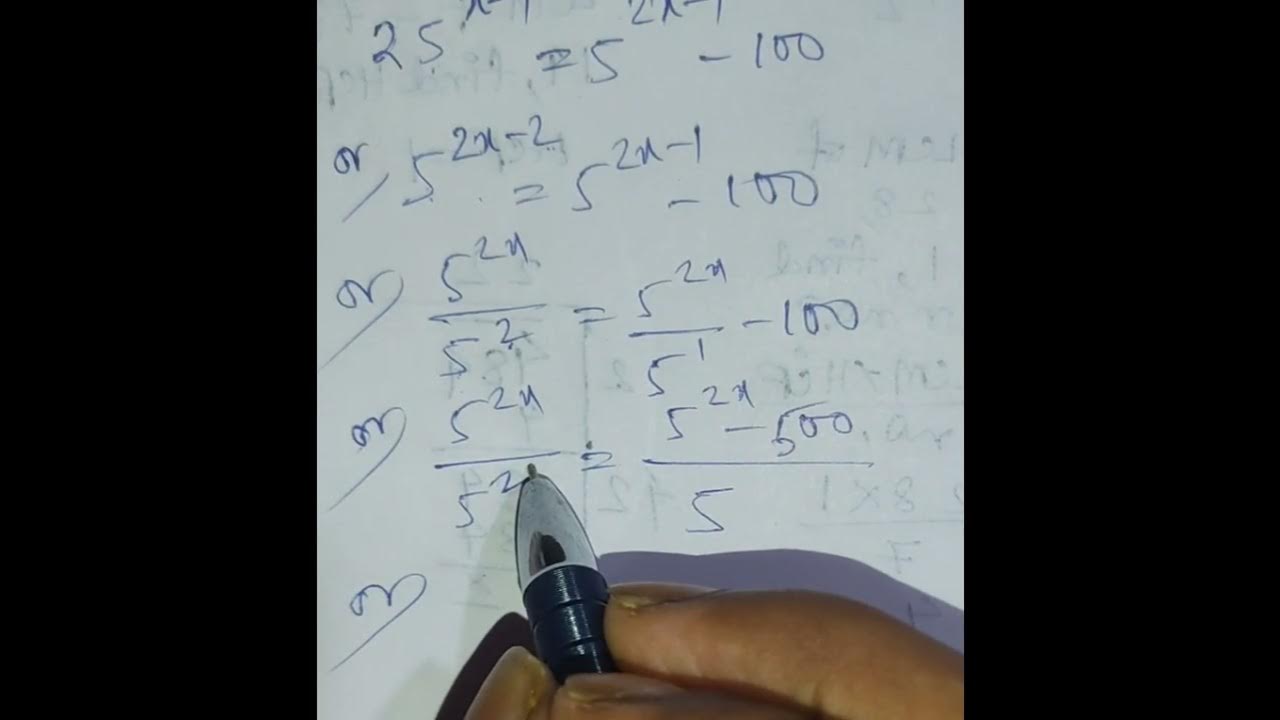 25^{x-1} = 5^{2x-1} - 100
or, 5^{2x-2} = 5^{2x-1} - 100
or, \frac{5^{2x}}{5^{2}} = \frac{5^{2x}}{5^{1}} - 100
or, \frac{5^{2x}}{5^{2}} = \frac{5^{2x} - 500}{5}
or,